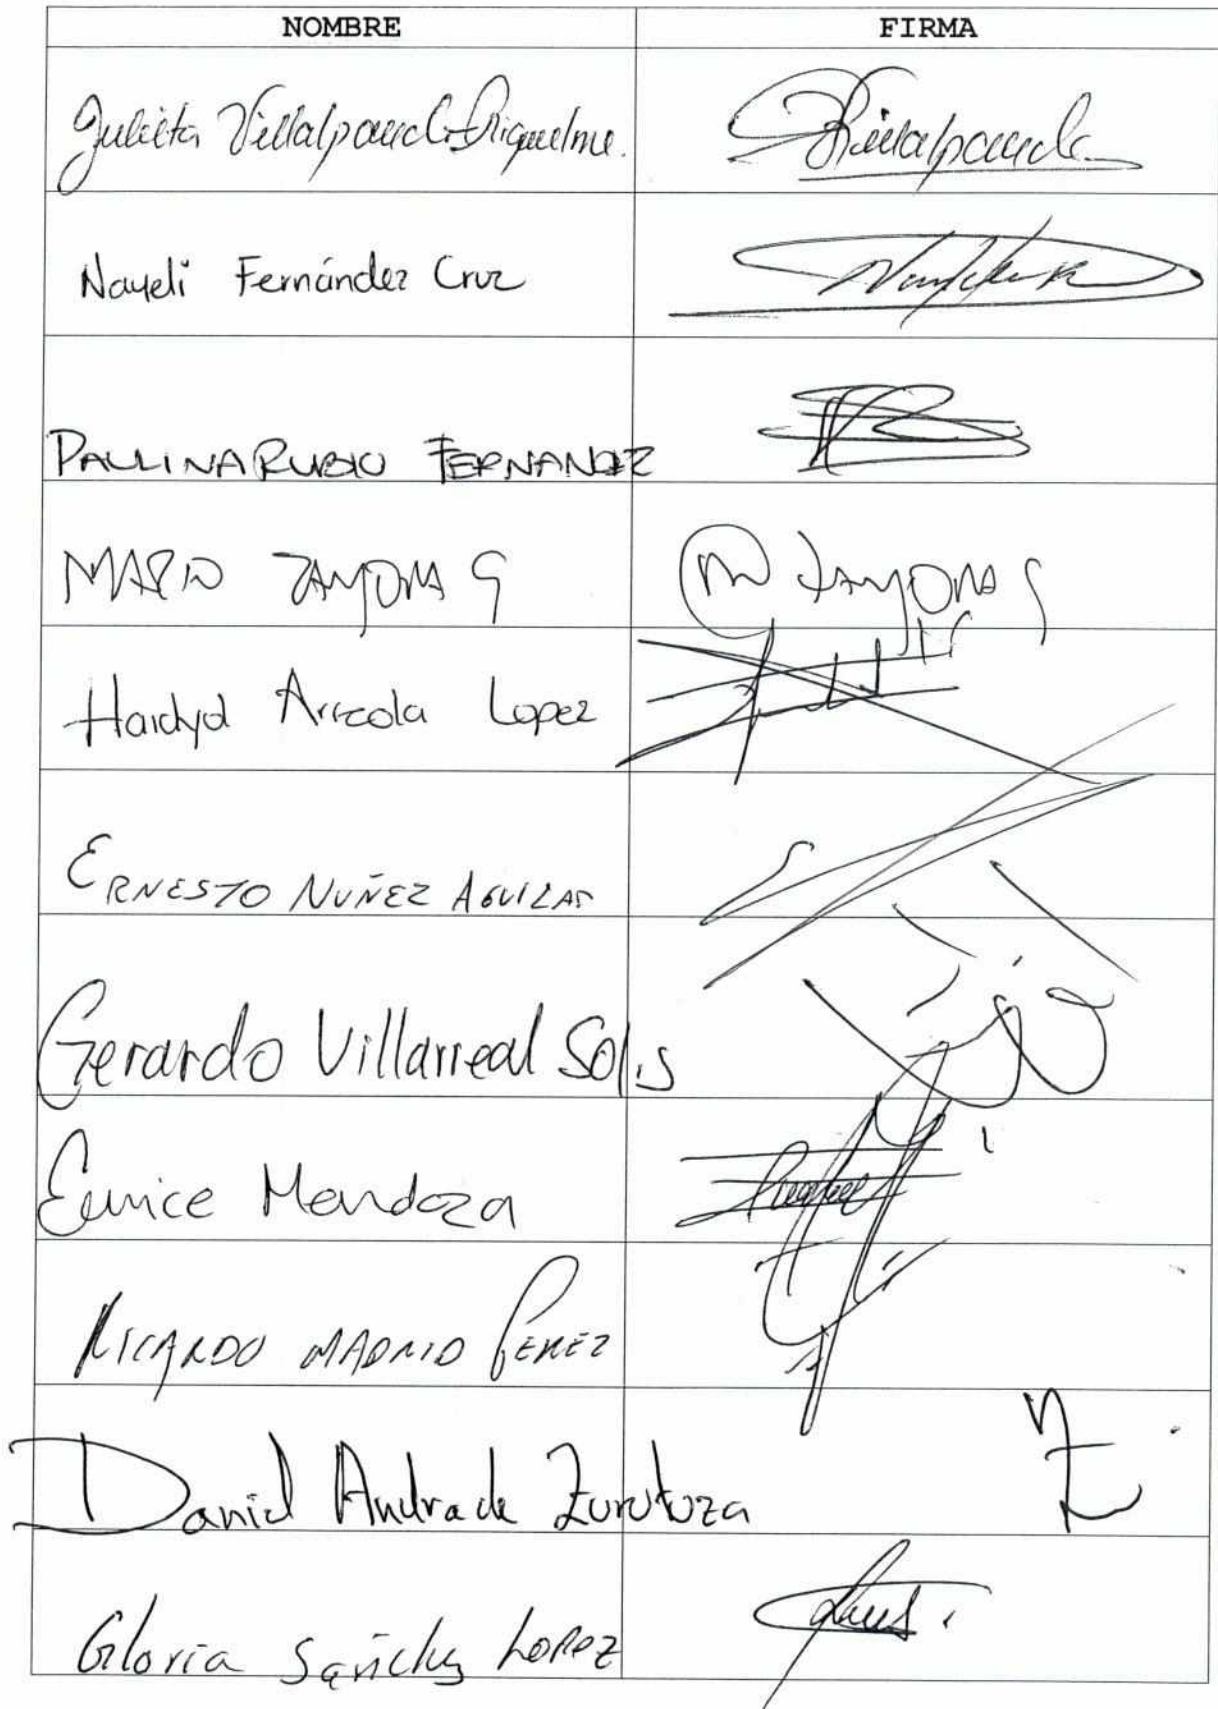 NOMBRE FIRMA
Julieta Villalpando Riquelme. Villalpando
Nayeli Fernández Cruz
PAULINA RUBIO FERNANDEZ
MARIO ZAMORA G M ZAMORA G
Haidyd Arreola Lopez
ERNESTO NUÑEZ AGUILAR
Gerardo Villarreal Solis
Eunice Mendoza
RICARDO MADRID PEREZ
Daniel Andrade Zurutuza
Gloria Sánchez LOPEZ